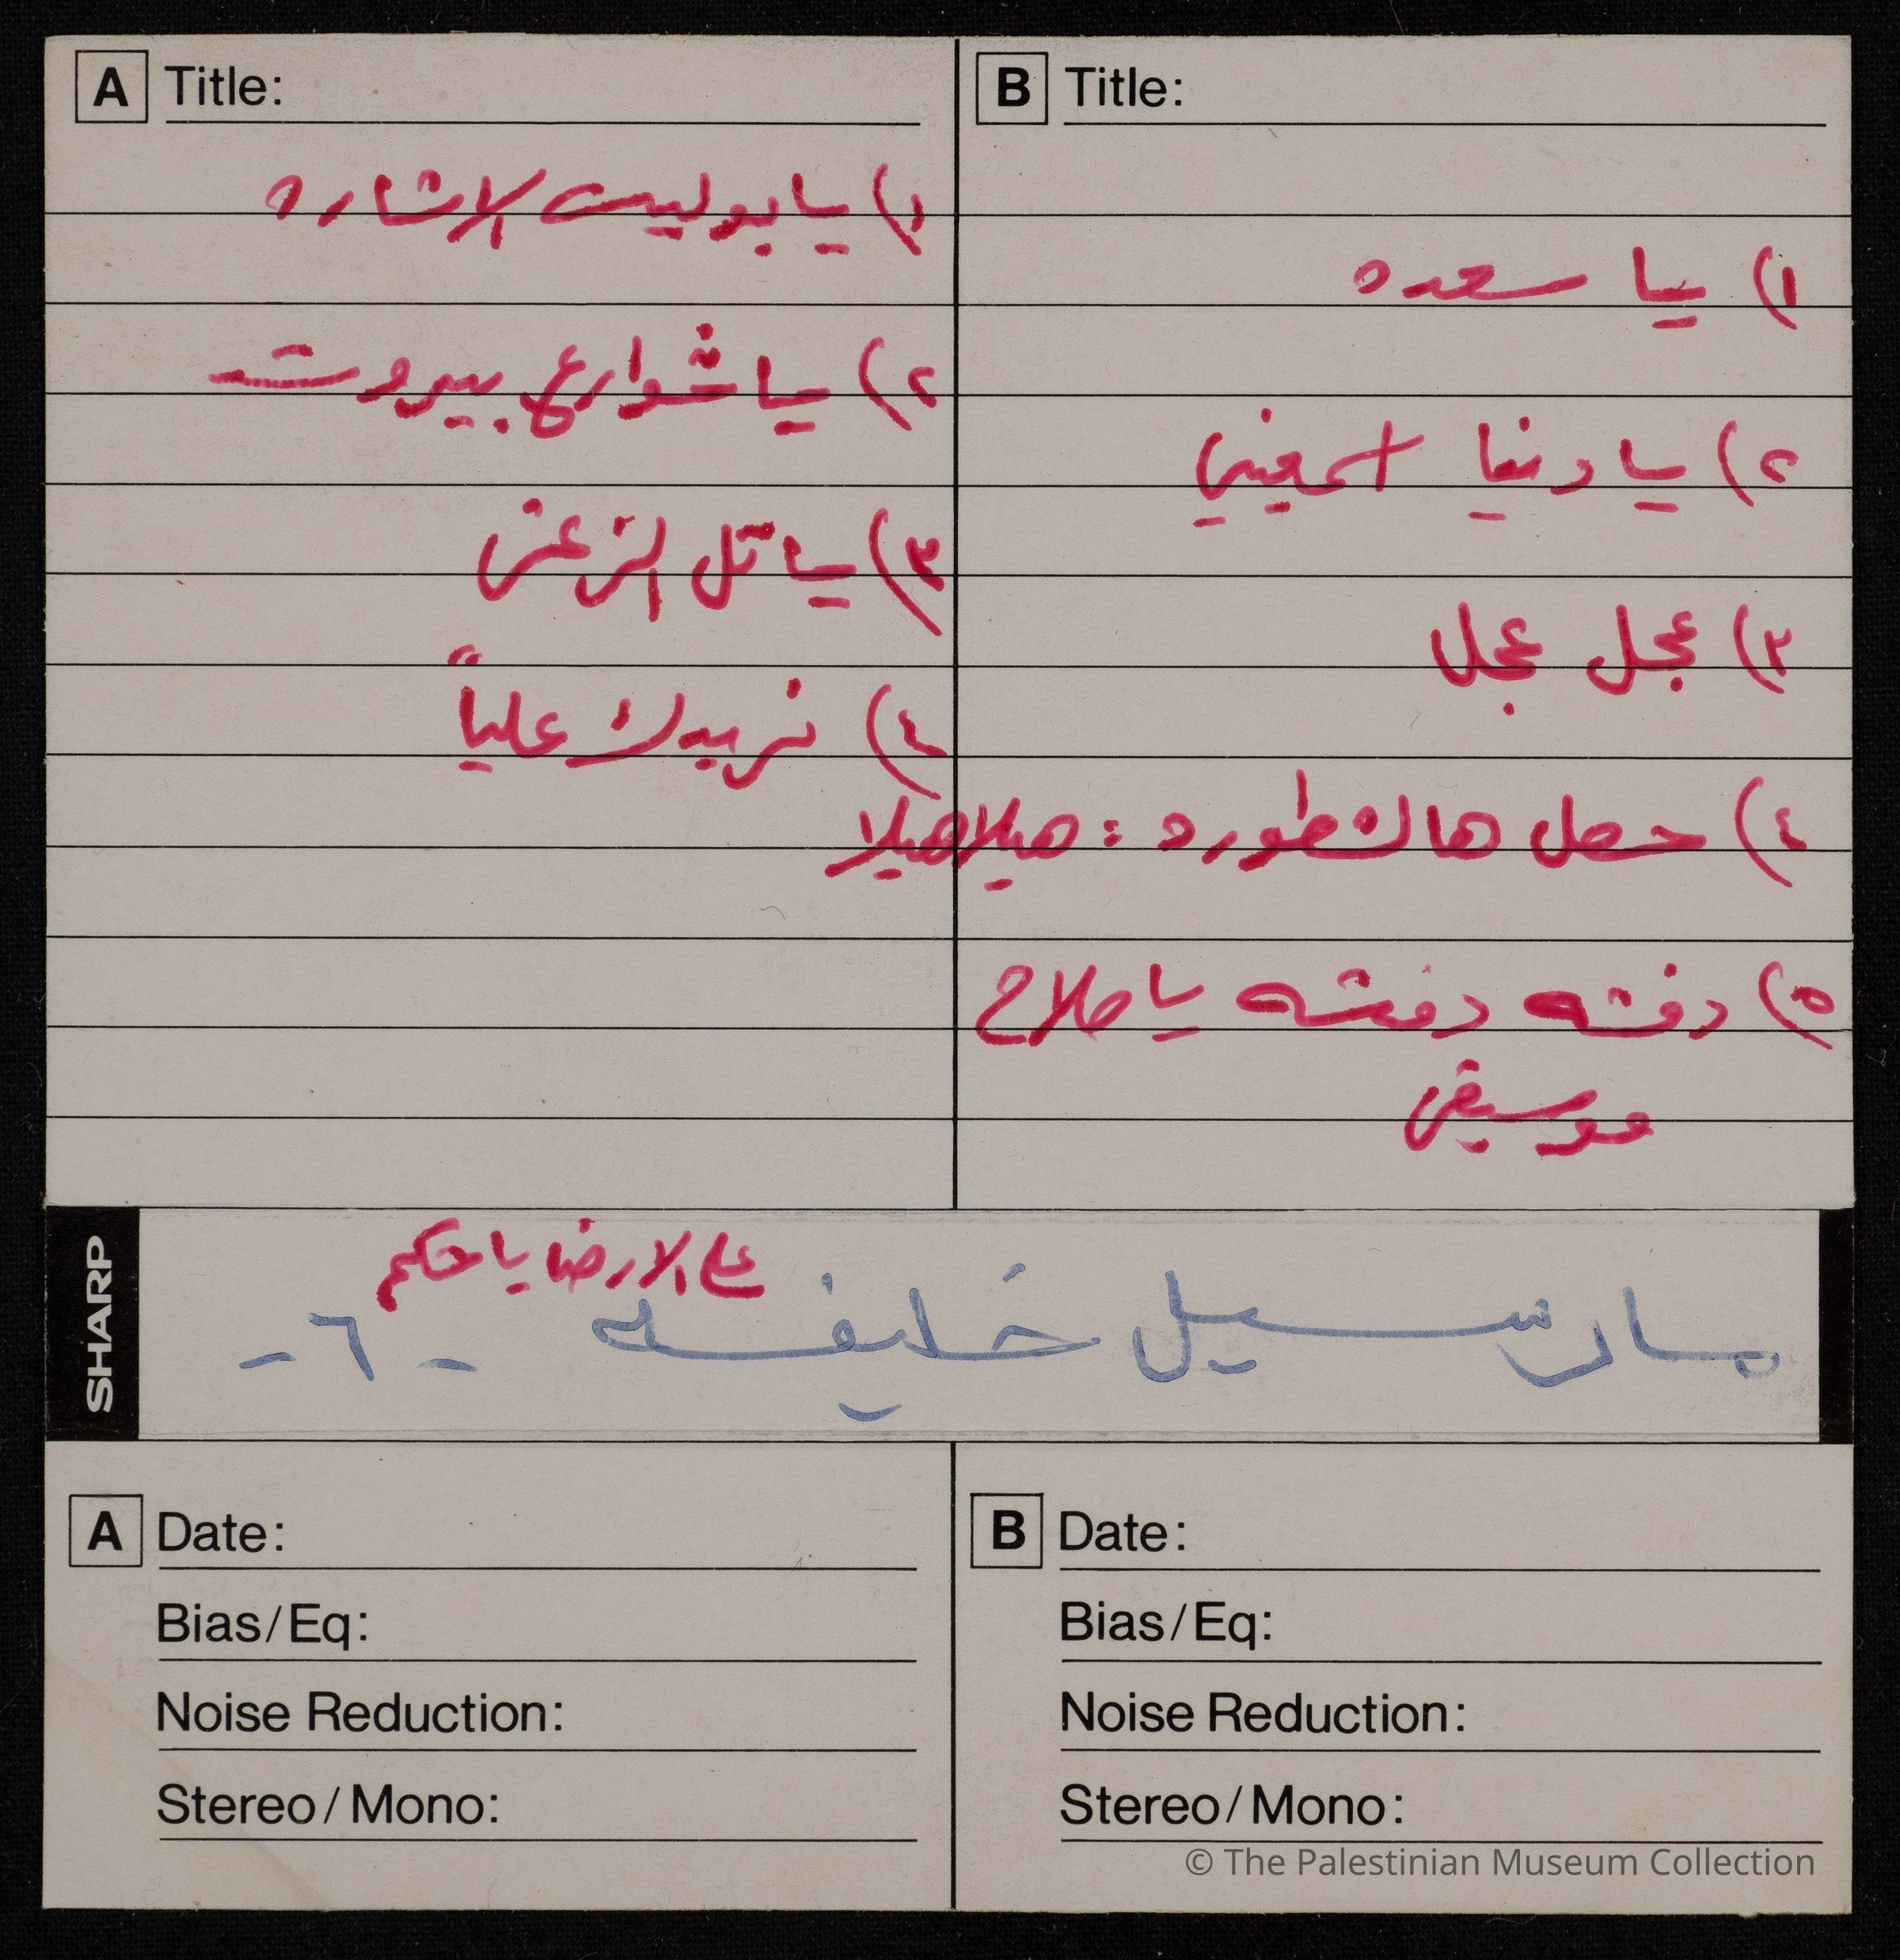 A Title:
١) يا بوليس الاشاره
٢) يا شوارع بيروت
٣) يا تل الزعتر
٤) نريدك علياً
B Title:
١) يا سعده
٢) يا دنيا اسمعيني
٣) عجل عجل
٤) حصل هالتطوره : هيلا هيلا
٥) دفشه دفشه يا صلاح
موسيقى
SHARP
على الارض يا حكم
مارسيل خليفه - ٦ -
A Date:
Bias/Eq:
Noise Reduction:
Stereo/Mono:
B Date:
Bias/Eq:
Noise Reduction:
Stereo/Mono:
© The Palestinian Museum Collection